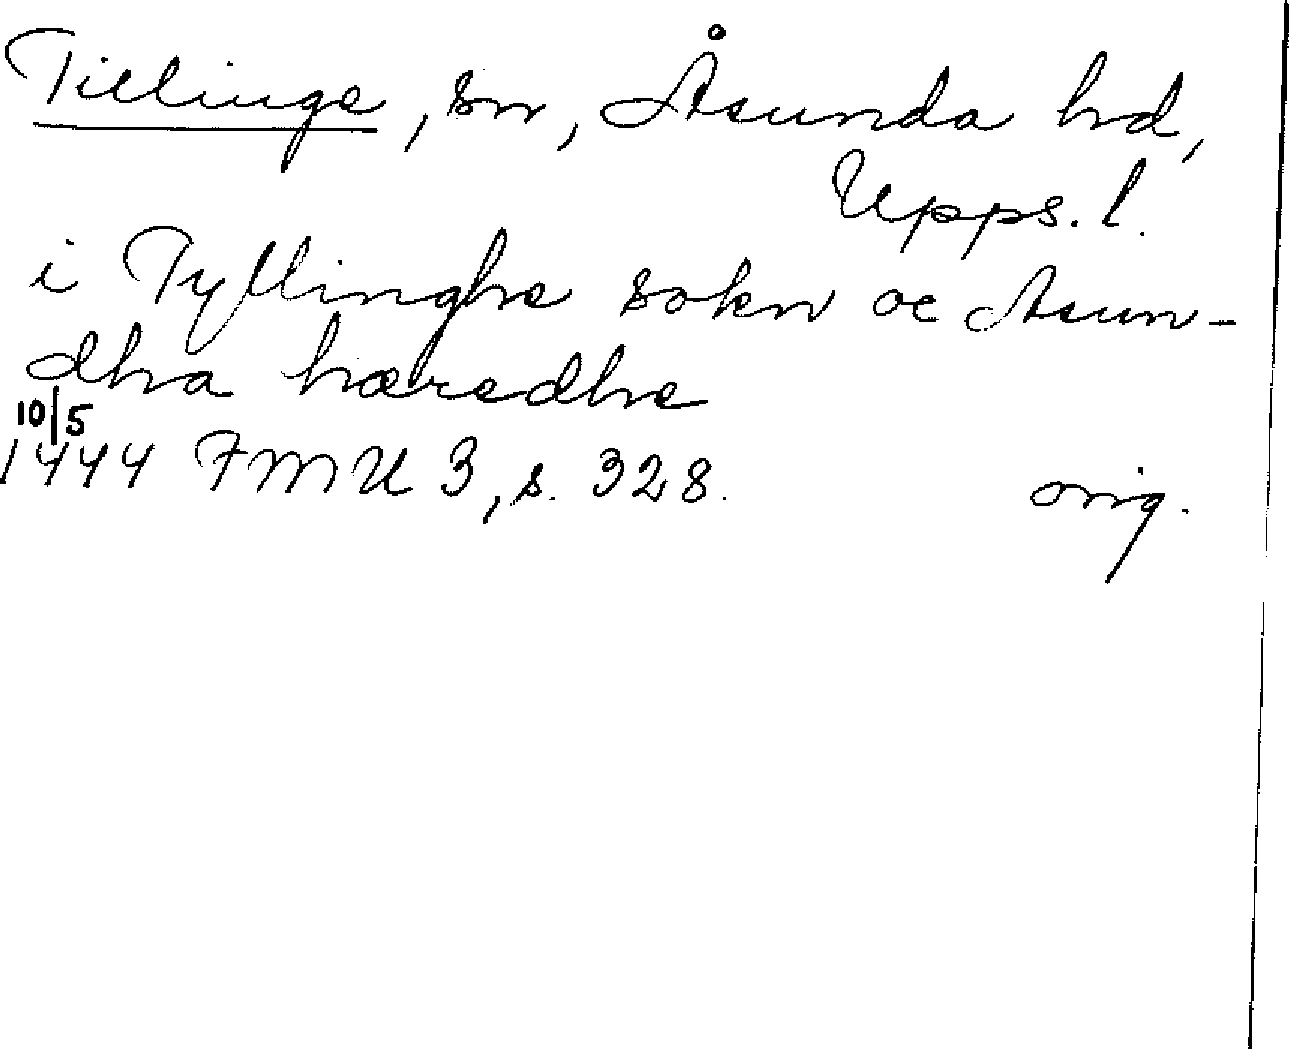 Tillinge, sn, Åsunda hd,
Upps. l.
i Tyllinghe sokn oc Asun-
dha hæredhe
10/5
1444 FMU 3, s. 328. orig.